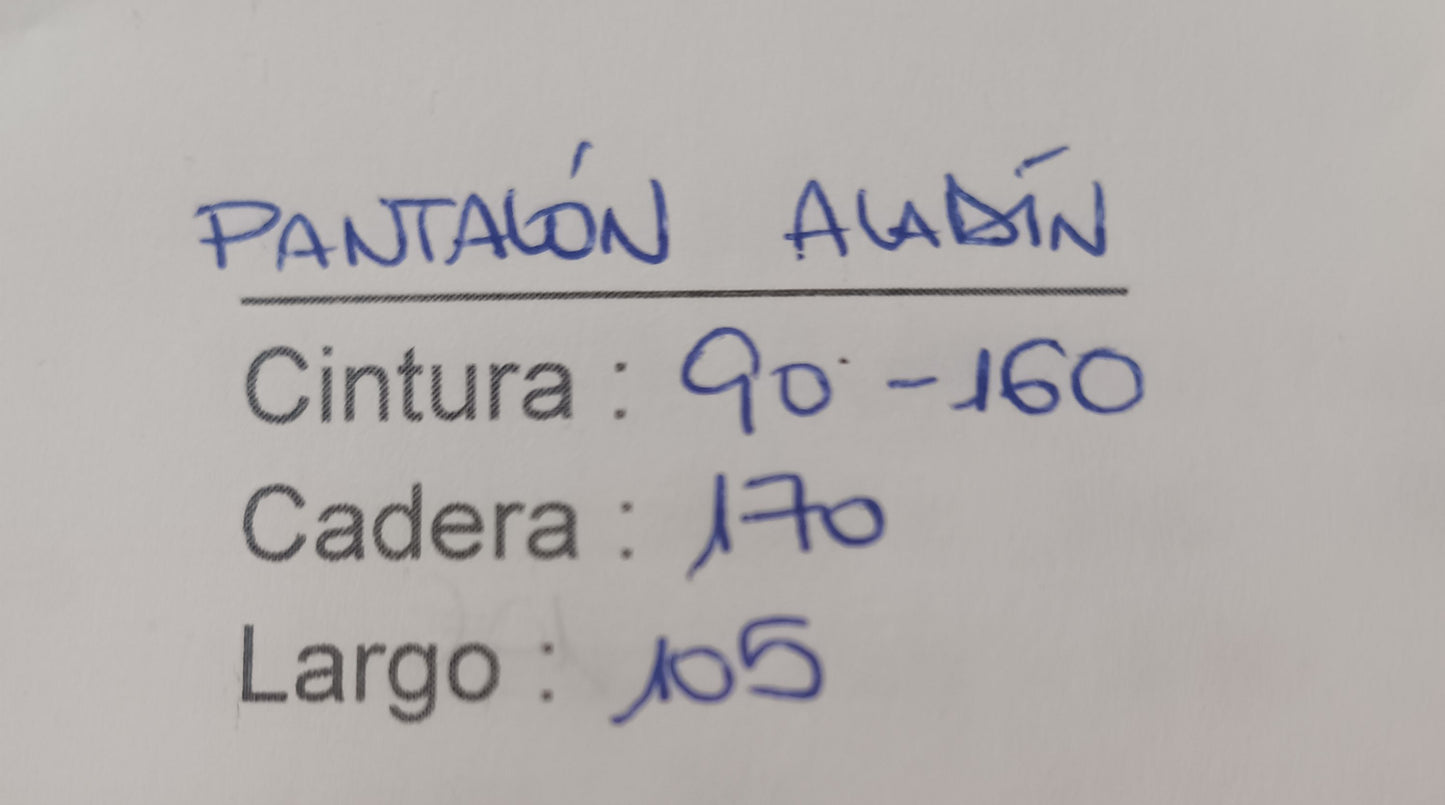 PANTALÓN ALADÍN
Cintura : 90 - 160
Cadera : 170
Largo : 105